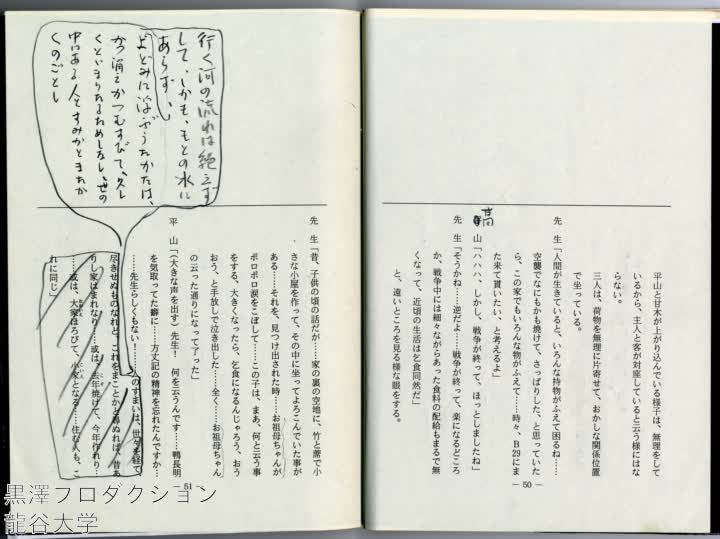 平山と甘木が上がり込んでいる様子は、無理をして
いるから、主人と客が対座していると云う様にはな
らない。
三人は、荷物を無理に片寄せて、おかしな関係位置
で坐っている。
先　生「人間が生きていると、いろんな持物がふえて困るね……
空襲でなにもかも焼けて、さっぱりした、と思っていた
ら、この家でもいろんな物がふえて……時々、B29にま
た来て貰いたい、と考えるよ」
山「ハハハ、しかし、戦争が終って、ほっとしましたね」
先　生「そうかね……逆だよ……戦争が終って、楽になるどころ
か、戦争中には細々ながらあった食料の配給もまるで無
くなって、近頃の生活は乞食同然だ」
と、遠いところを見る様な眼をする。
— 50 —
先　生「昔、子供の頃の話だが……家の裏の空地に、竹と蓆で小
さな小屋を作って、その中に坐ってよろこんでいた事が
ある……それを、見つけ出された時……お祖母ちゃんが
ポロポロ涙をこぼして……この子は、まあ、何と云う事
をする、大きくなったら、乞食になるんじゃろう、おう
おう、と手放しで泣き出した……全く……お祖母ちゃん
の云った通りになって了った」
平　山「（大きな声を出す）先生！　何を云うんです……鴨長明
を気取ってた癖に……方丈記の精神を忘れたんですか…
……先生らしくもない……
のすまいは、世々を経て
尽きせぬものなれど、これをまことかと尋ぬれば、昔あ
りし家はまれなり……或は、去年焼けて、今年作れり…
……或は、大家ほろびて、小家となる……住む人も、こ
れに同じ」
— 51 —
行く河の流れは絶えず
して、しかも、もとの水に
あらず、
よどみに浮ぶうたかたは、
かつ消えかつむすびて、久し
くとどまりたるためしなし、世の
中にある人とすみかとまたか
くのごとし
黒澤プロダクション
龍谷大学